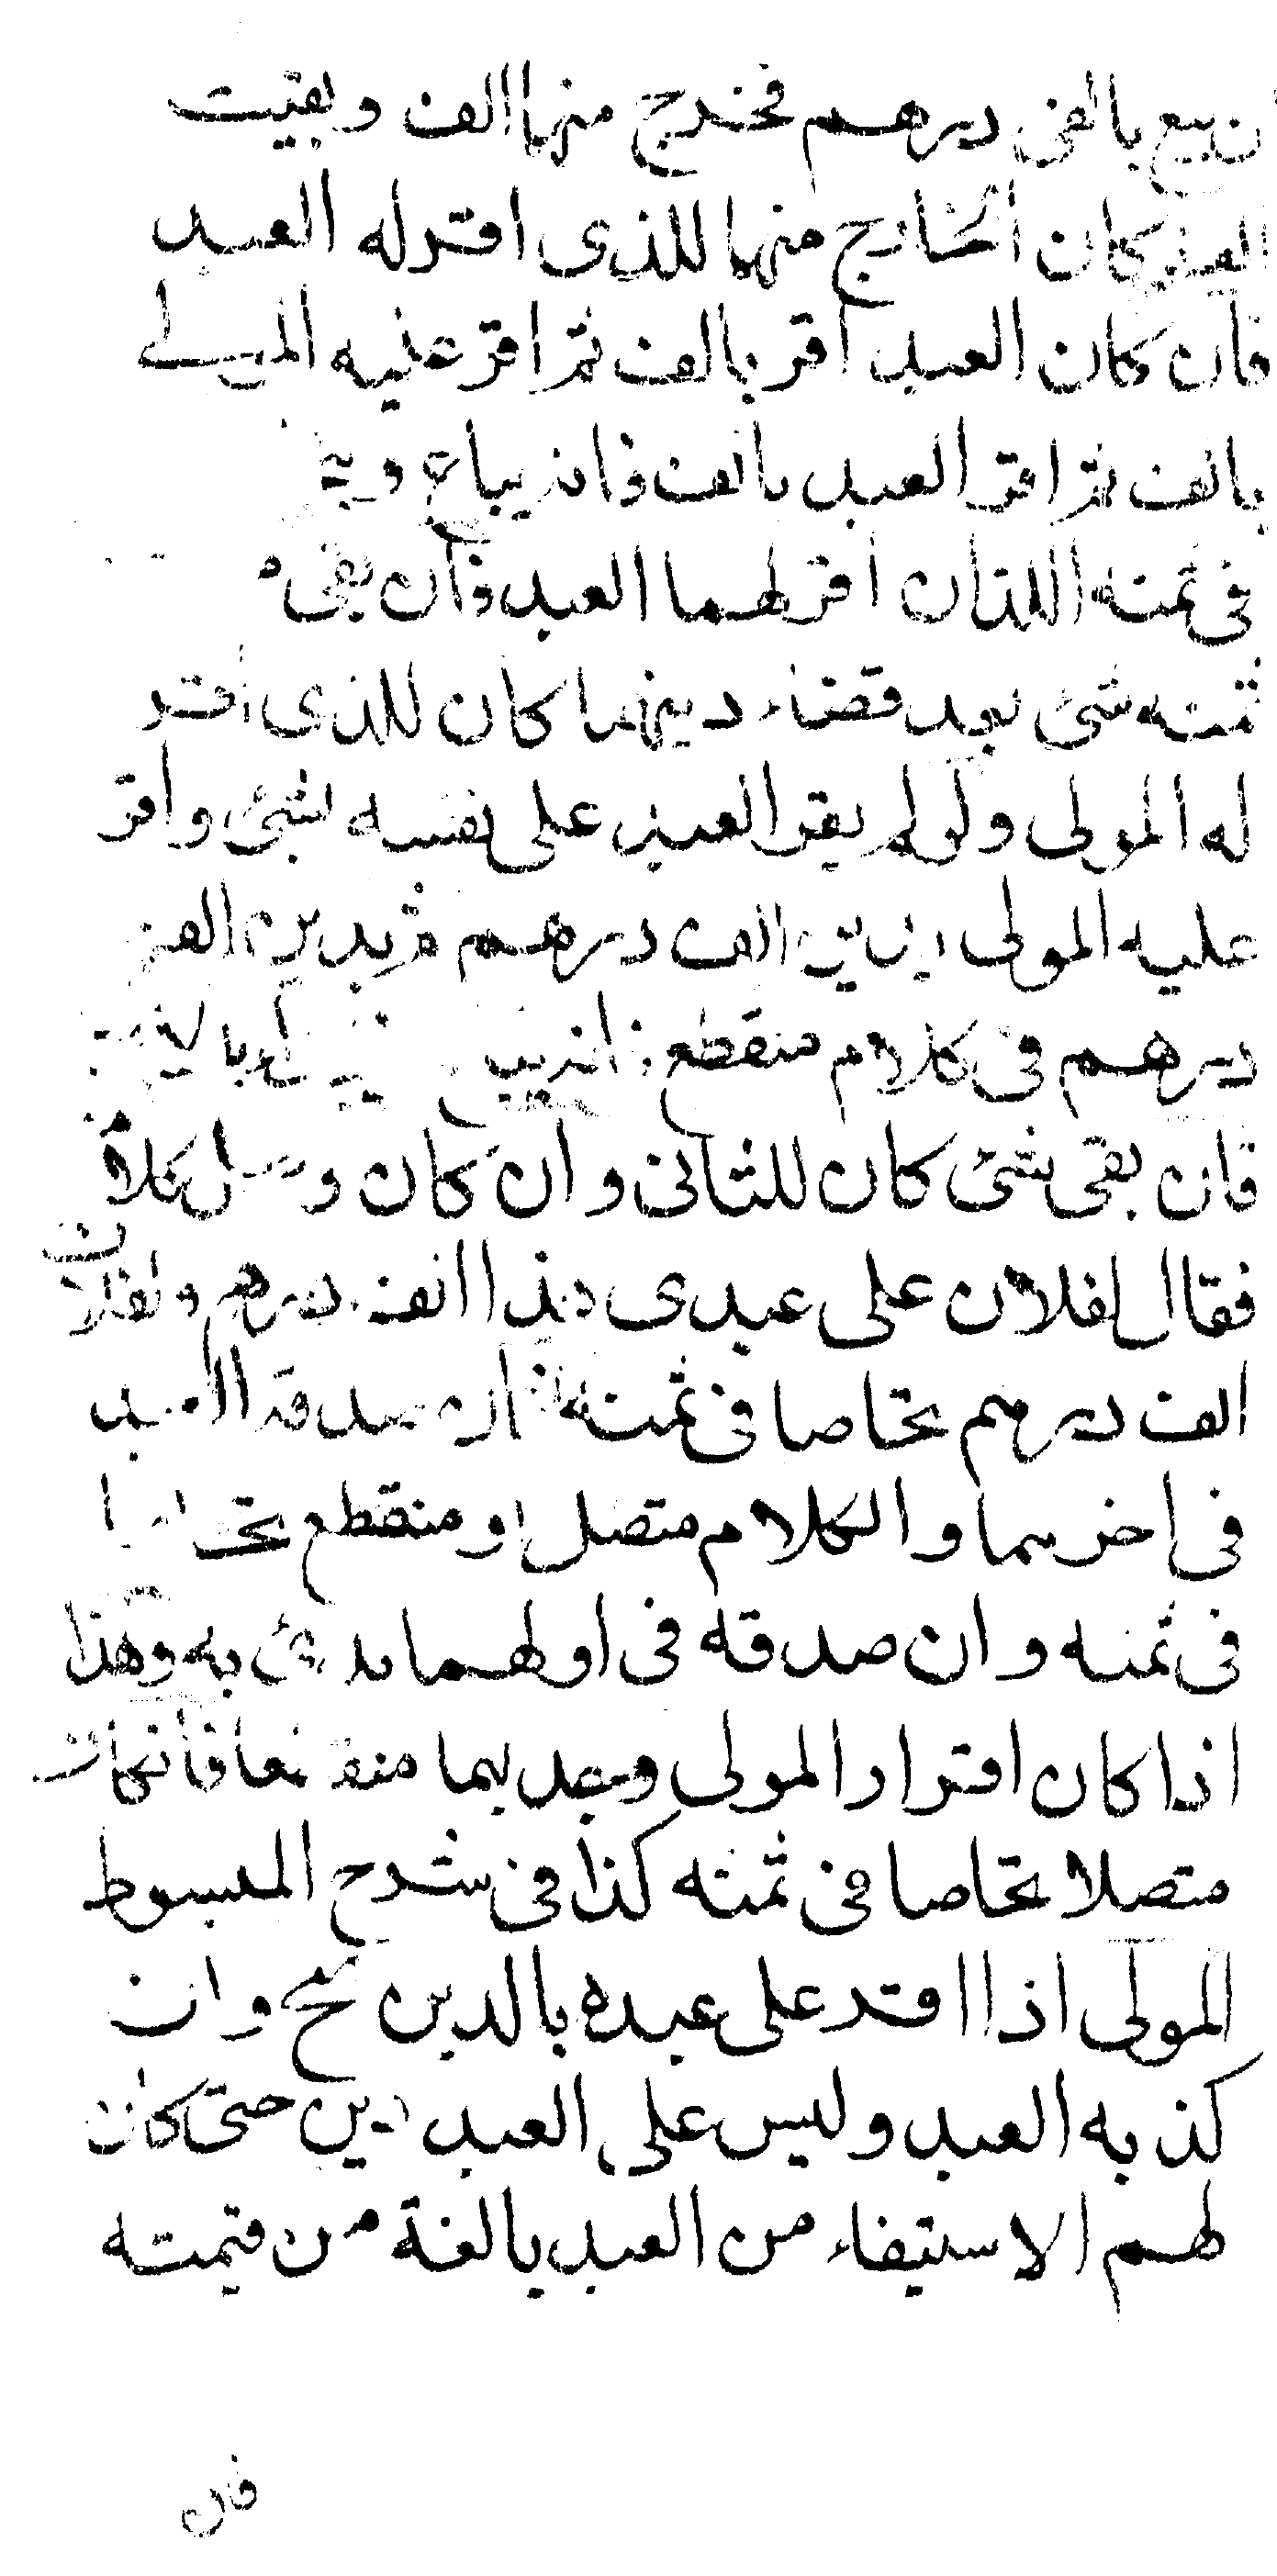 ن بيع بالفى درهم فخرج منها الف وبقيت
الف كان الخارج منها للذى اقر له العبد
فان كان العبد اقر بالف ثم اقر عليه المولى
بالف ثم اقر العبد بالف فانه يباع
فى ثمنه اللذان اقر لهما العبد فان بقى
ثمنه شئ بعد قضاء دينهما كان للذى اقر
له المولى ولو لم يقر العبد على نفسه بشئ واقر
عليه المولى الف درهم ثم بدين الف
درهم فى كلام منقطع
فان بقى شئ كان للثانى وان كان وصل كلامه
فقال لفلان على عبدى هذا الف درهم ولفلان
الف درهم تحاصا فى ثمنه فان صدقه العبد
فى اخرهما والكلام متصل او منقطع تحاصا
فى ثمنه وان صدقه فى اولهما بدئ به وهذا
اذا كان اقرار المولى وجد بهما منقطعا فان كان
متصلا تحاصا فى ثمنه كذا فى شرح المبسوط
المولى اذا اقر على عبده بالدين صح وان
كذبه العبد وليس على العبد دين حتى كان
لهم الاستيفاء من العبد بالغة من قيمته
فان